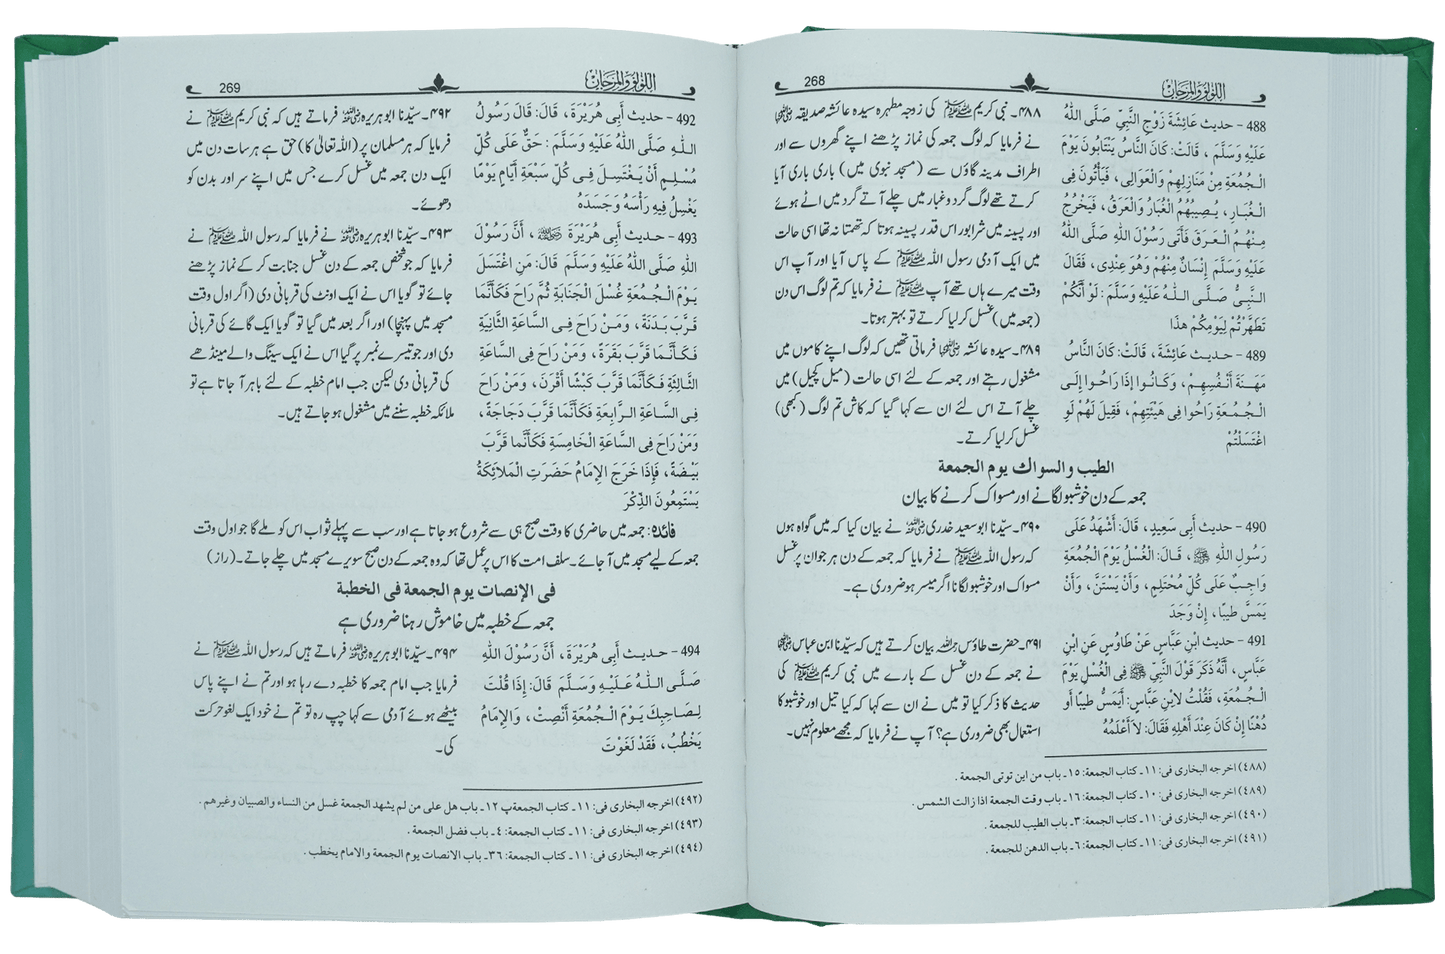 اللؤلؤ والمرجان
268
488 - حديث عَائِشَةَ زَوْجِ النَّبِيِّ صَلَّى اللّٰهُ
عَلَيْهِ وَسَلَّمَ ، قَالَتْ: كَانَ النَّاسُ يَنْتَابُونَ يَوْمَ
الْجُمُعَةِ مِنْ مَنَازِلِهِمْ وَالْعَوَالِى ، فَيَأْتُونَ فِى
الْغُبَارِ ، يُصِيبُهُمُ الْغُبَارُ وَالْعَرَقُ ، فَيَخْرُجُ
مِنْهُمُ الْعَرَقُ فَأَتَى رَسُولَ اللّٰهِ صَلَّى اللّٰهُ
عَلَيْهِ وَسَلَّمَ إِنْسَانٌ مِنْهُمْ وَهُوَ عِنْدِى ، فَقَالَ
النَّبِىُّ صَلَّى اللّٰهُ عَلَيْهِ وَسَلَّمَ : لَوْ أَنَّكُمْ
تَطَهَّرْتُمْ لِيَوْمِكُمْ هٰذَا
489 - حديث عَائِشَةَ ، قَالَتْ: كَانَ النَّاسُ
مَهَنَةَ أَنْفُسِهِمْ ، وَكَانُوا إِذَا رَاحُوا إِلَى
الْجُمُعَةِ رَاحُوا فِى هَيْئَتِهِمْ ، فَقِيلَ لَهُمْ لَوِ
اغْتَسَلْتُمْ
۴۸۸۔ نبی کریم ﷺ کی زوجہ مطہرہ سیدہ عائشہ صدیقہ رضی اللہ عنہا
نے فرمایا کہ لوگ جمعہ کی نماز پڑھنے اپنے گھروں سے اور
اطراف مدینہ گاؤں سے (مسجد نبوی میں) باری باری آیا
کرتے تھے لوگ گرد و غبار میں چلے آتے گرد میں اٹے ہوئے
اور پسینہ میں شرابور اس قدر پسینہ ہوتا کہ تھمتا نہ تھا اسی حالت
میں ایک آدمی رسول اللہ ﷺ کے پاس آیا اور آپ اس
وقت میرے ہاں تھے آپ ﷺ نے فرمایا کہ تم لوگ اس دن
(جمعہ میں) غسل کر لیا کرتے تو بہتر ہوتا۔
۴۸۹۔ سیدہ عائشہ رضی اللہ عنہا فرماتی تھیں کہ لوگ اپنے کاموں میں
مشغول رہتے اور جمعہ کے لئے اسی حالت (میل کچیل) میں
چلے آتے اس لئے ان سے کہا گیا کہ کاش تم لوگ (کبھی)
غسل کر لیا کرتے۔
الطيب والسواك يوم الجمعة
جمعہ کے دن خوشبو لگانے اور مسواک کرنے کا بیان
490 - حديث أَبِى سَعِيدٍ ، قَالَ: أَشْهَدُ عَلَى
رَسُولِ اللّٰهِ ﷺ ، قَالَ: الْغُسْلُ يَوْمَ الْجُمُعَةِ
وَاجِبٌ عَلَى كُلِّ مُحْتَلِمٍ ، وَأَنْ يَسْتَنَّ ، وَأَنْ
يَمَسَّ طِيبًا ، إِنْ وَجَدَ
491 - حديث ابْنِ عَبَّاسٍ عَنْ طَاوُسٍ عَنِ ابْنِ
عَبَّاسٍ ، أَنَّهُ ذَكَرَ قَوْلَ النَّبِيِّ ﷺ فِى الْغُسْلِ يَوْمَ
الْجُمُعَةِ ، فَقُلْتُ لاِبْنِ عَبَّاسٍ: أَيَمَسُّ طِيبًا أَو
دُهْنًا إِنْ كَانَ عِنْدَ أَهْلِهِ فَقَالَ: لاَ أَعْلَمُهُ
۴۹۰۔ سیّدنا ابو سعید خدری رضی اللہ عنہ نے بیان کیا کہ میں گواہ ہوں
کہ رسول اللہ ﷺ نے فرمایا کہ جمعہ کے دن ہر جوان پر غسل
مسواک اور خوشبو لگانا اگر میسر ہو ضروری ہے۔
۴۹۱۔ حضرت طاؤس رحمہ اللہ بیان کرتے ہیں کہ سیّدنا ابن عباس رضی اللہ عنہما
نے جمعہ کے دن غسل کے بارے میں نبی کریم ﷺ کی
حدیث کا ذکر کیا تو میں نے ان سے کہا کہ کیا تیل اور خوشبو کا
استعمال بھی ضروری ہے؟ آپ نے فرمایا کہ مجھے معلوم نہیں۔
(۴۸۸) اخرجه البخاری فی: ۱۱۔ كتاب الجمعة: ۱۵۔ باب من این توتی الجمعة .
(۴۸۹) اخرجه البخاری فی: ۱۰۔ كتاب الجمعة: ۱۶۔ باب وقت الجمعة اذا زالت الشمس .
(۴۹۰) اخرجه البخاری فی: ۱۱۔ كتاب الجمعة: ۳۔ باب الطيب للجمعة .
(۴۹۱) اخرجه البخاری فی: ۱۱۔ كتاب الجمعة: ۶۔ باب الدهن للجمعة .
اللؤلؤ والمرجان
269
492 - حديث أَبِى هُرَيْرَةَ ، قَالَ: قَالَ رَسُولُ
اللّٰهِ صَلَّى اللّٰهُ عَلَيْهِ وَسَلَّمَ : حَقٌّ عَلَى كُلِّ
مُسْلِمٍ أَنْ يَغْتَسِلَ فِى كُلِّ سَبْعَةِ أَيَّامٍ يَوْمًا
يَغْسِلُ فِيهِ رَأْسَهُ وَجَسَدَهُ
493 - حديث أَبِى هُرَيْرَةَ رضی اللہ عنہ ، أَنَّ رَسُولَ
اللّٰهِ صَلَّى اللّٰهُ عَلَيْهِ وَسَلَّمَ قَالَ: مَنِ اغْتَسَلَ
يَوْمَ الْجُمُعَةِ غُسْلَ الْجَنَابَةِ ثُمَّ رَاحَ فَكَأَنَّمَا
قَرَّبَ بَدَنَةً ، وَمَنْ رَاحَ فِى السَّاعَةِ الثَّانِيَةِ
فَكَأَنَّمَا قَرَّبَ بَقَرَةً ، وَمَنْ رَاحَ فِى السَّاعَةِ
الثَّالِثَةِ فَكَأَنَّمَا قَرَّبَ كَبْشًا أَقْرَنَ ، وَمَنْ رَاحَ
فِى السَّاعَةِ الرَّابِعَةِ فَكَأَنَّمَا قَرَّبَ دَجَاجَةً ،
وَمَنْ رَاحَ فِى السَّاعَةِ الْخَامِسَةِ فَكَأَنَّمَا قَرَّبَ
بَيْضَةً ، فَإِذَا خَرَجَ الإِمَامُ حَضَرَتِ الْمَلاَئِكَةُ
يَسْتَمِعُونَ الذِّكْرَ
۴۹۲۔ سیّدنا ابو ہریرہ رضی اللہ عنہ فرماتے ہیں کہ نبی کریم ﷺ نے
فرمایا کہ ہر مسلمان پر (اللہ تعالیٰ کا) حق ہے ہر سات دن میں
ایک دن جمعہ میں غسل کرے جس میں اپنے سر اور بدن کو
دھوئے۔
۴۹۳۔ سیّدنا ابو ہریرہ رضی اللہ عنہ نے فرمایا کہ رسول اللہ ﷺ نے
فرمایا کہ جو شخص جمعہ کے دن غسل جنابت کر کے نماز پڑھنے
جائے تو گویا اس نے ایک اونٹ کی قربانی دی (اگر اول وقت
مسجد میں پہنچا) اور اگر بعد میں گیا تو گویا ایک گائے کی قربانی
دی اور جو تیسرے نمبر پر گیا اس نے ایک سینگ والے مینڈھے
کی قربانی دی لیکن جب امام خطبہ کے لئے باہر آ جاتا ہے تو
ملائکہ خطبہ سننے میں مشغول ہو جاتے ہیں۔
فائدہ: جمعہ میں حاضری کا وقت صبح ہی سے شروع ہو جاتا ہے اور سب سے پہلے ثواب اس کو ملے گا جو اول وقت
جمعہ کے لیے مسجد میں آ جائے۔ سلف امت کا اس پر عمل تھا کہ وہ جمعہ کے دن صبح سویرے مسجد میں چلے جاتے۔ (راز)
فى الإنصات يوم الجمعة فى الخطبة
جمعہ کے خطبہ میں خاموش رہنا ضروری ہے
494 - حديث أَبِى هُرَيْرَةَ ، أَنَّ رَسُولَ اللّٰهِ
صَلَّى اللّٰهُ عَلَيْهِ وَسَلَّمَ قَالَ: إِذَا قُلْتَ
لِصَاحِبِكَ يَوْمَ الْجُمُعَةِ أَنْصِتْ ، وَالإِمَامُ
يَخْطُبُ ، فَقَدْ لَغَوْتَ
۴۹۴۔ سیّدنا ابو ہریرہ رضی اللہ عنہ فرماتے ہیں کہ رسول اللہ ﷺ نے
فرمایا جب امام جمعہ کا خطبہ دے رہا ہو اور تم نے اپنے پاس
بیٹھے ہوئے آدمی سے کہا چپ رہ تو تم نے خود ایک لغو حرکت
کی۔
(۴۹۲) اخرجه البخاری فی: ۱۱۔ كتاب الجمعةپ ۱۲۔ باب هل علی من لم يشهد الجمعة غسل من النساء والصبيان وغيرهم .
(۴۹۳) اخرجه البخاری فی: ۱۱۔ كتاب الجمعة: ۴۔ باب فضل الجمعة .
(۴۹۴) اخرجه البخاری فی: ۱۱۔ كتاب الجمعة: ۳۶۔ باب الانصات يوم الجمعة والامام يخطب .